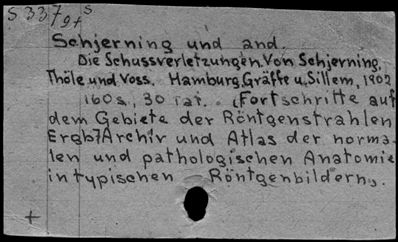 S 337/9+ S
Schjerning und and.
Die Schussverletzungen. Von Schjerning,
Thöle und Voss. Hamburg, Gräfte u. Sillem, 1902
160 s, 30 taf. (Fortschritte auf
dem Gebiete der Röntgenstrahlen
Ergb 7 Archiv und Atlas der norma-
len und pathologischen Anatomie
in typischen Röntgenbildern).
+